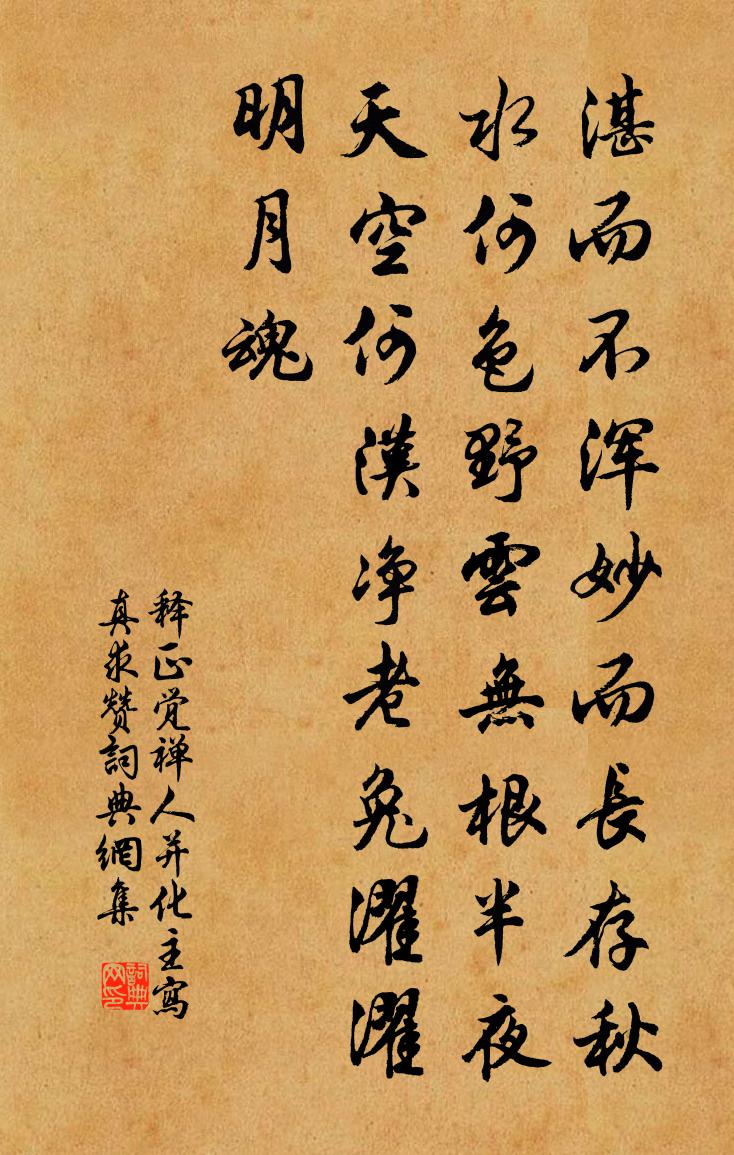 湛而不浑妙而長存秋
水何色野雲無根半夜
天空何漢净老兔濯濯
明月魂
释正觉禅人并化主寫
真求赞詞典網集
詞典网印